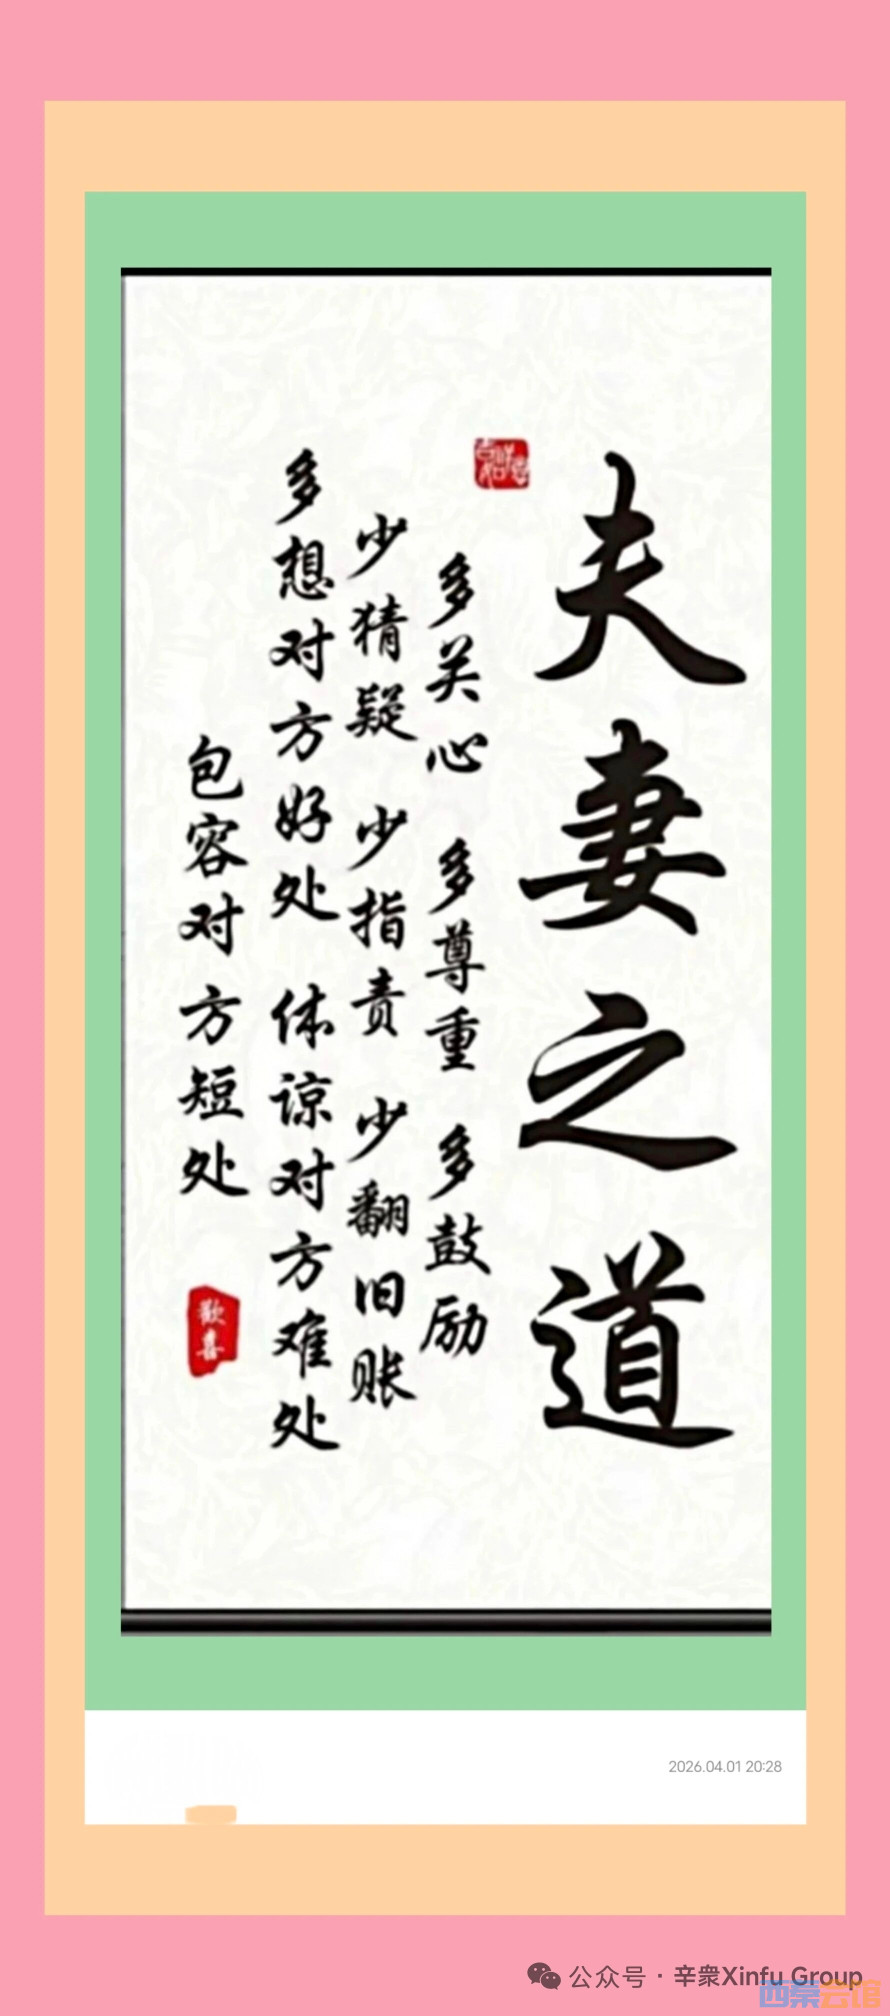 夫妻之道
多关心 多尊重 多鼓励
少猜疑 少指责 少翻旧账
多想对方好处 体谅对方难处
包容对方短处
歡喜
2026.04.01 20:28
公众号 · 辛衆Xinfu Group
西秦会馆